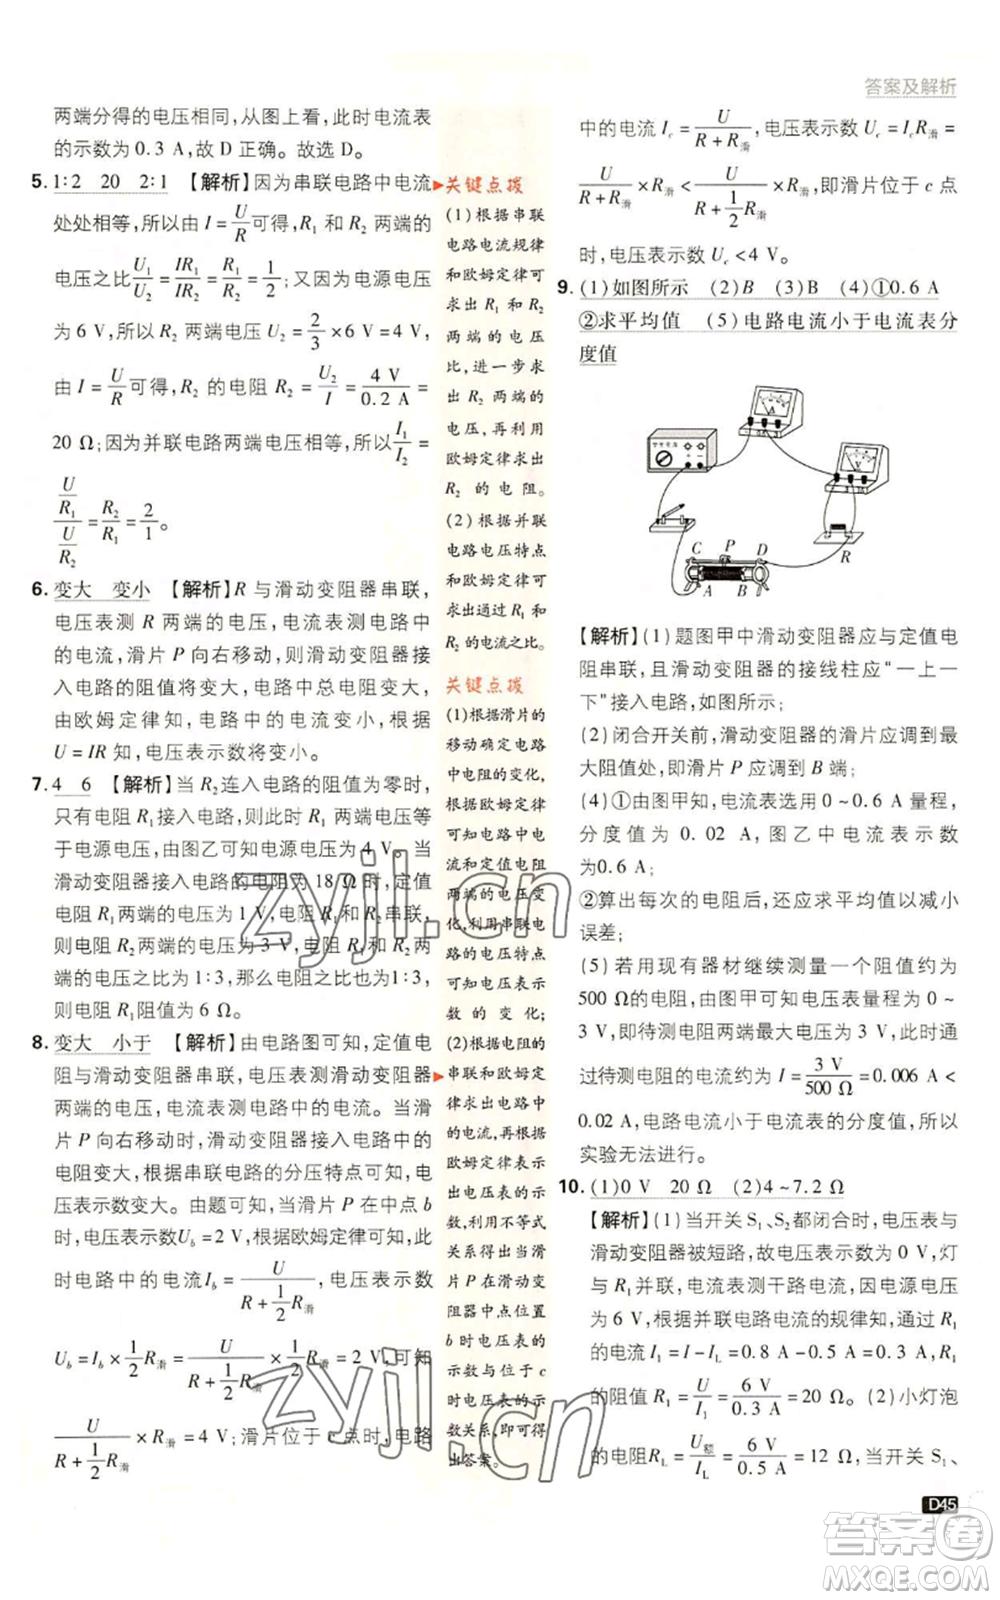 答案及解析
两端分得的电压相同,从图上看,此时电流表
的示数为0.3 A,故D正确。故选D。
5. 1∶2 20 2∶1 【解析】因为串联电路中电流
处处相等,所以由I=U/R可得,R₁和R₂两端的
电压之比U₁/U₂=IR₁/IR₂=R₁/R₂=1/2;又因为电源电压
为6 V,所以R₂两端电压U₂=2/3×6 V=4 V,
由I=U/R可得,R₂的电阻R₂=U₂/I=4 V/0.2 A=
20 Ω;因为并联电路两端电压相等,所以I₁/I₂=
(U/R₁)/(U/R₂)=R₂/R₁=2/1。
6. 变大 变小 【解析】R与滑动变阻器串联,
电压表测R两端的电压,电流表测电路中
的电流,滑片P向右移动,则滑动变阻器接
入电路的阻值将变大,电路中总电阻变大,
由欧姆定律知,电路中的电流变小,根据
U=IR知,电压表示数将变小。
7. 4 6 【解析】当R₂连入电路的阻值为零时,
只有电阻R₁接入电路,R₁两端的电压等
于电源电压,由图乙可知电源电压为4 V。当
滑动变阻器接入电路的电阻为18 Ω时,定值
电阻R₁两端的电压为1 V,R₁和R₂串联,
则电阻R₂两端的电压为3 V,因为R₁和R₂两
端的电压之比为1∶3,那么电阻之比也为1∶3,
则电阻R₁阻值为6 Ω。
8. 变大 小于 【解析】由电路图可知,定值电
阻与滑动变阻器串联,电压表测滑动变阻器
两端的电压,电流表测电路中的电流。当滑
片P向右移动时,滑动变阻器接入电路中的
电阻变大,根据串联电路的分压特点可知,电
压表示数变大。由题可知,当滑片P在中点b
时,电压表示数U_b=2 V,根据欧姆定律可知,此
时电路中的电流I_b=U/(R+1/2 R滑),电压表示数
U_b=I_b×1/2 R滑=U/(R+1/2 R滑)×1/2 R滑=2 V,可知
U/(R+1/2 R滑)×R滑=4 V;滑片位于c点时,电路
关键点拨
(1)根据串联
电路电流规律
和欧姆定律可
求出R₁和R₂
两端的电压
比,进一步求
出R₂两端的
电压,再利用
欧姆定律求出
R₂的电阻。
(2)根据并联
电路电压特点
和欧姆定律可
求出通过R₁和
R₂的电流之比。
关键点拨
(1)根据滑片的
移动确定电路
中电阻的变化,
根据欧姆定律
可知电路中电
流和定值电阻
两端的电压变
化,利用串联电
路的电压特点
可知电压表示
数的变化;
(2)根据电阻的
串联和欧姆定
律求出电路中
的电流,再根据
欧姆定律表示
出电压表的示
数,利用不等式
关系得出当滑
片P在滑动变
阻器中点位置
b时电压表的
示数与位于c
时电压表的示
数关系,即可得
出答案。
中的电流I_c=U/(R+R滑),电压表示数U_c=I_cR滑=
U/(R+R滑)×R滑<U/(R+1/2 R滑)×R滑,即滑片位于c点
时,电压表示数U_c<4 V。
9. (1)如图所示 (2)B (3)B (4)①0.6 A
②求平均值 (5)电路电流小于电流表分
度值
A
V
R
C P D
A B
【解析】(1)题图甲中滑动变阻器应与定值电
阻串联,且滑动变阻器的接线柱应“一上一
下”接入电路,如图所示;
(2)闭合开关前,滑动变阻器的滑片应调到最
大阻值处,即滑片P应调到B端;
(4)①由图甲知,电流表选用0~0.6 A量程,
分度值为0.02 A,图乙中电流表示数
为0.6 A;
②算出每次的电阻后,还应求平均值以减小
误差;
(5)若用现有器材继续测量一个阻值约为
500 Ω的电阻,由图甲可知电压表量程为0~
3 V,即待测电阻两端最大电压为3 V,此时通
过待测电阻的电流约为I=3 V/500 Ω=0.006 A<
0.02 A,电路电流小于电流表的分度值,所以
实验无法进行。
10. (1)0 V 20 Ω (2)4~7.2 Ω
【解析】(1)当开关S₁、S₂都闭合时,电压表与
滑动变阻器被短路,故电压表示数为0 V,灯
与R₁并联,电流表测干路电流,因电源电压
为6 V,根据并联电路电流的规律知,通过R₁
的电流I₁=I-I_L=0.8 A-0.5 A=0.3 A,R₁
的阻值R₁=U/I₁=6 V/0.3 A=20 Ω。(2)小灯泡
的电阻R_L=U额/I_L=6 V/0.5 A=12 Ω,当开关S₁、
D45
zyjl.cn
zyjl.cn
答案卷
MXQE.COM